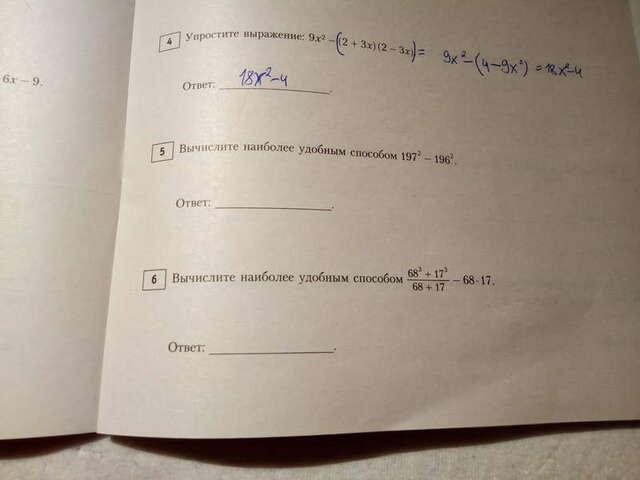 6x − 9.
4 Упростите выражение: 9x² − ((2 + 3x)(2 − 3x)) = 9x² − (4 − 9x²) = 18x² − 4
Ответ: 18x² − 4.
5 Вычислите наиболее удобным способом 197² − 196².
Ответ: ____________.
6 Вычислите наиболее удобным способом (68³ + 17³)/(68 + 17) − 68 · 17.
Ответ: ____________.